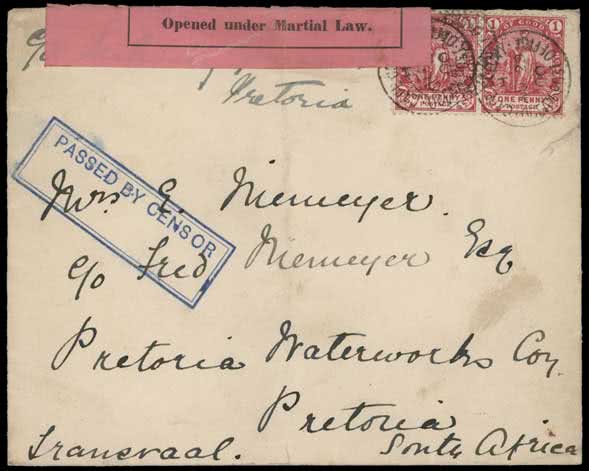 Opened under Martial Law.
c/o
Pretoria
OF GOOD
1 1
ONE PENNY ONE PENNY
POSTAGE POSTAGE
PASSED BY CENSOR
Mrs E. Niemeyer.
c/o Fred Niemeyer Esq
Pretoria Waterworks Coy.
Pretoria
Transvaal. South Africa